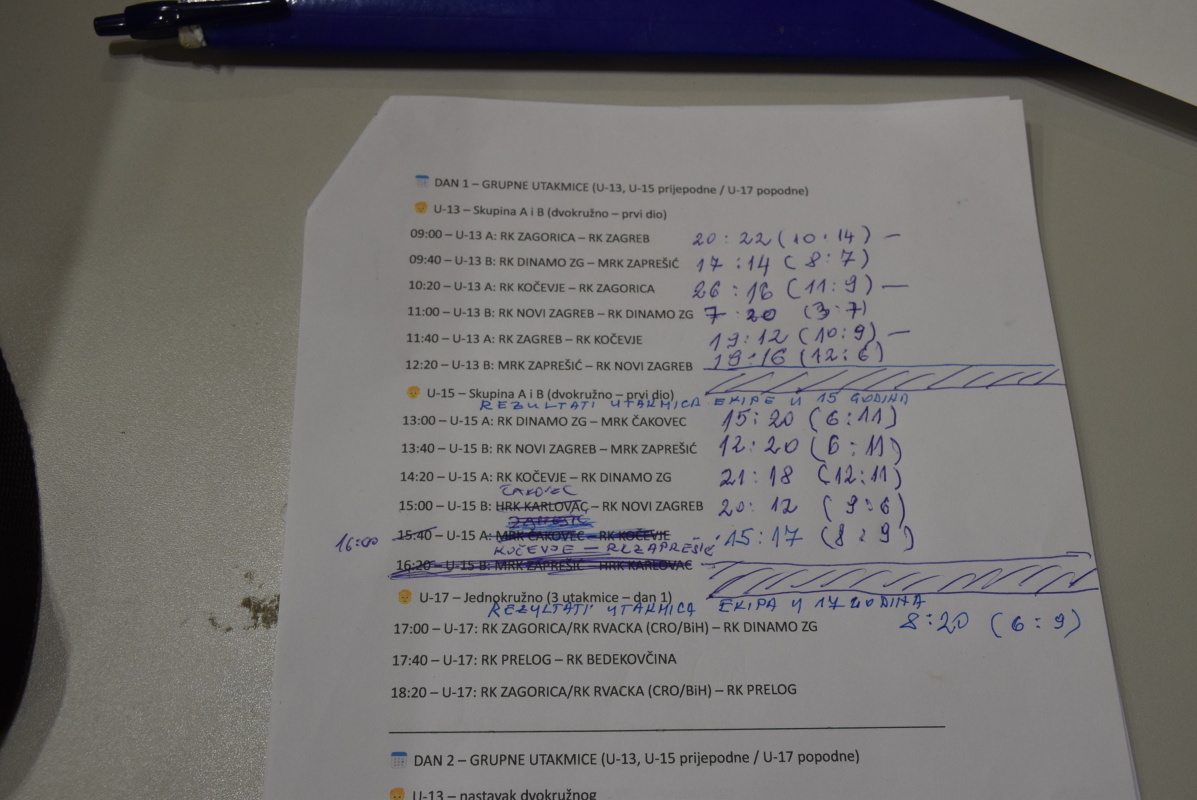 DAN 1 – GRUPNE UTAKMICE (U-13, U-15 prijepodne / U-17 popodne)
U-13 – Skupina A i B (dvokružno – prvi dio)
09:00 – U-13 A: RK ZAGORICA – RK ZAGREB 20:22 (10:14) –
09:40 – U-13 B: RK DINAMO ZG – MRK ZAPREŠIĆ 17:14 (8:7)
10:20 – U-13 A: RK KOČEVJE – RK ZAGORICA 26:18 (11:9) –
11:00 – U-13 B: RK NOVI ZAGREB – RK DINAMO ZG 7:20 (3:7)
11:40 – U-13 A: RK ZAGREB – RK KOČEVJE 19:12 (10:9) –
12:20 – U-13 B: MRK ZAPREŠIĆ – RK NOVI ZAGREB 19:16 (12:6)
U-15 – Skupina A i B (dvokružno – prvi dio)
REZULTATI UTAKMICA EKIPE U 15 GODINA
13:00 – U-15 A: RK DINAMO ZG – MRK ČAKOVEC 15:20 (6:11)
13:40 – U-15 B: RK NOVI ZAGREB – MRK ZAPREŠIĆ 12:20 (6:11)
14:20 – U-15 A: RK KOČEVJE – RK DINAMO ZG 21:18 (12:11)
ČAKOVEC
15:00 – U-15 B: HRK KARLOVAC – RK NOVI ZAGREB 20:12 (9:6)
16:00 15:40 – U-15 A: MRK ČAKOVEC – RK KOČEVJE 15:17 (8:9)
KOČEVJE – RK ZAPREŠIĆ
16:20 – U-15 B: MRK ZAPREŠIĆ – HRK KARLOVAC
U-17 – Jednokružno (3 utakmice – dan 1)
REZULTATI UTAKMICA EKIPA U 17 GODINA
17:00 – U-17: RK ZAGORICA/RK RVACKA (CRO/BiH) – RK DINAMO ZG 8:20 (6:9)
17:40 – U-17: RK PRELOG – RK BEDEKOVČINA
18:20 – U-17: RK ZAGORICA/RK RVACKA (CRO/BiH) – RK PRELOG
DAN 2 – GRUPNE UTAKMICE (U-13, U-15 prijepodne / U-17 popodne)
U-13 – nastavak dvokružnog